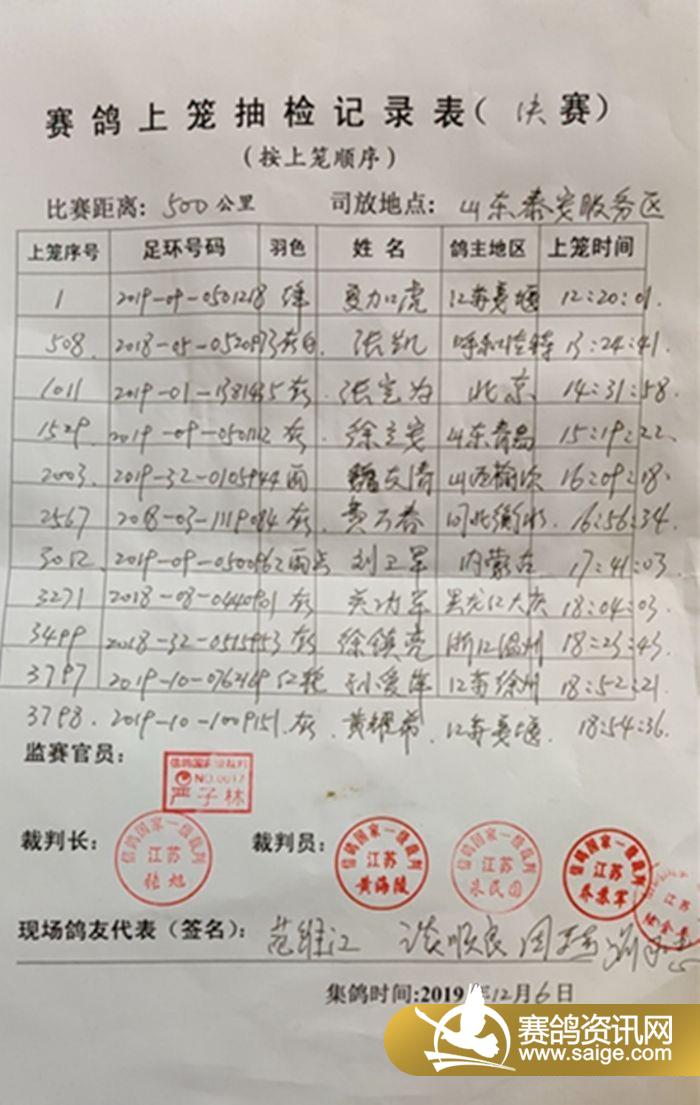 赛鸽上笼抽检记录表(决赛)
(按上笼顺序)
比赛距离: 500公里 司放地点: 山东泰安服务区
上笼序号 足环号码 羽色 姓名 鸽主地区 上笼时间
1 2019-09-0501218 绛 江苏姜堰 12:20:01
508. 2018-05-0520973 灰白 张凯 呼和浩特 13:24:41
1011 2019-01-1381435 灰 张宝为 北京 14:31:58
1529 2019-09-0501112 灰 徐立安 山东青岛 15:19:22
2003. 2019-32-0105944 雨 魏友清 山西榆次 16:09:18
2567 2018-03-1119084 灰 黄万春 河北衡水 16:56:34
3012 2019-09-0500962 雨点 刘卫军 内蒙古 17:41:03
3271 2018-08-0440901 灰 关功军 黑龙江大庆 18:04:03
3499 2018-32-0515953 灰 徐镇亮 浙江温州 18:23:43
3797 2019-10-0762169 红轮 孙 江苏徐州 18:52:21
3798. 2019-10-1009151 灰 黄耀希 江苏姜堰 18:54:36
监赛官员:
信鸽国家级裁判
NO.0017
严子林
裁判长: 信鸽国家一级裁判 江苏 张旭
裁判员: 信鸽国家一级裁判 江苏 黄海陵 信鸽国家一级裁判 江苏 朱民国 信鸽国家一级裁判 江苏 乔泰军 江苏
现场鸽友代表(签名): 范维江 谈顺良
集鸽时间:2019年12月6日
赛鸽资讯网
www.saige.com